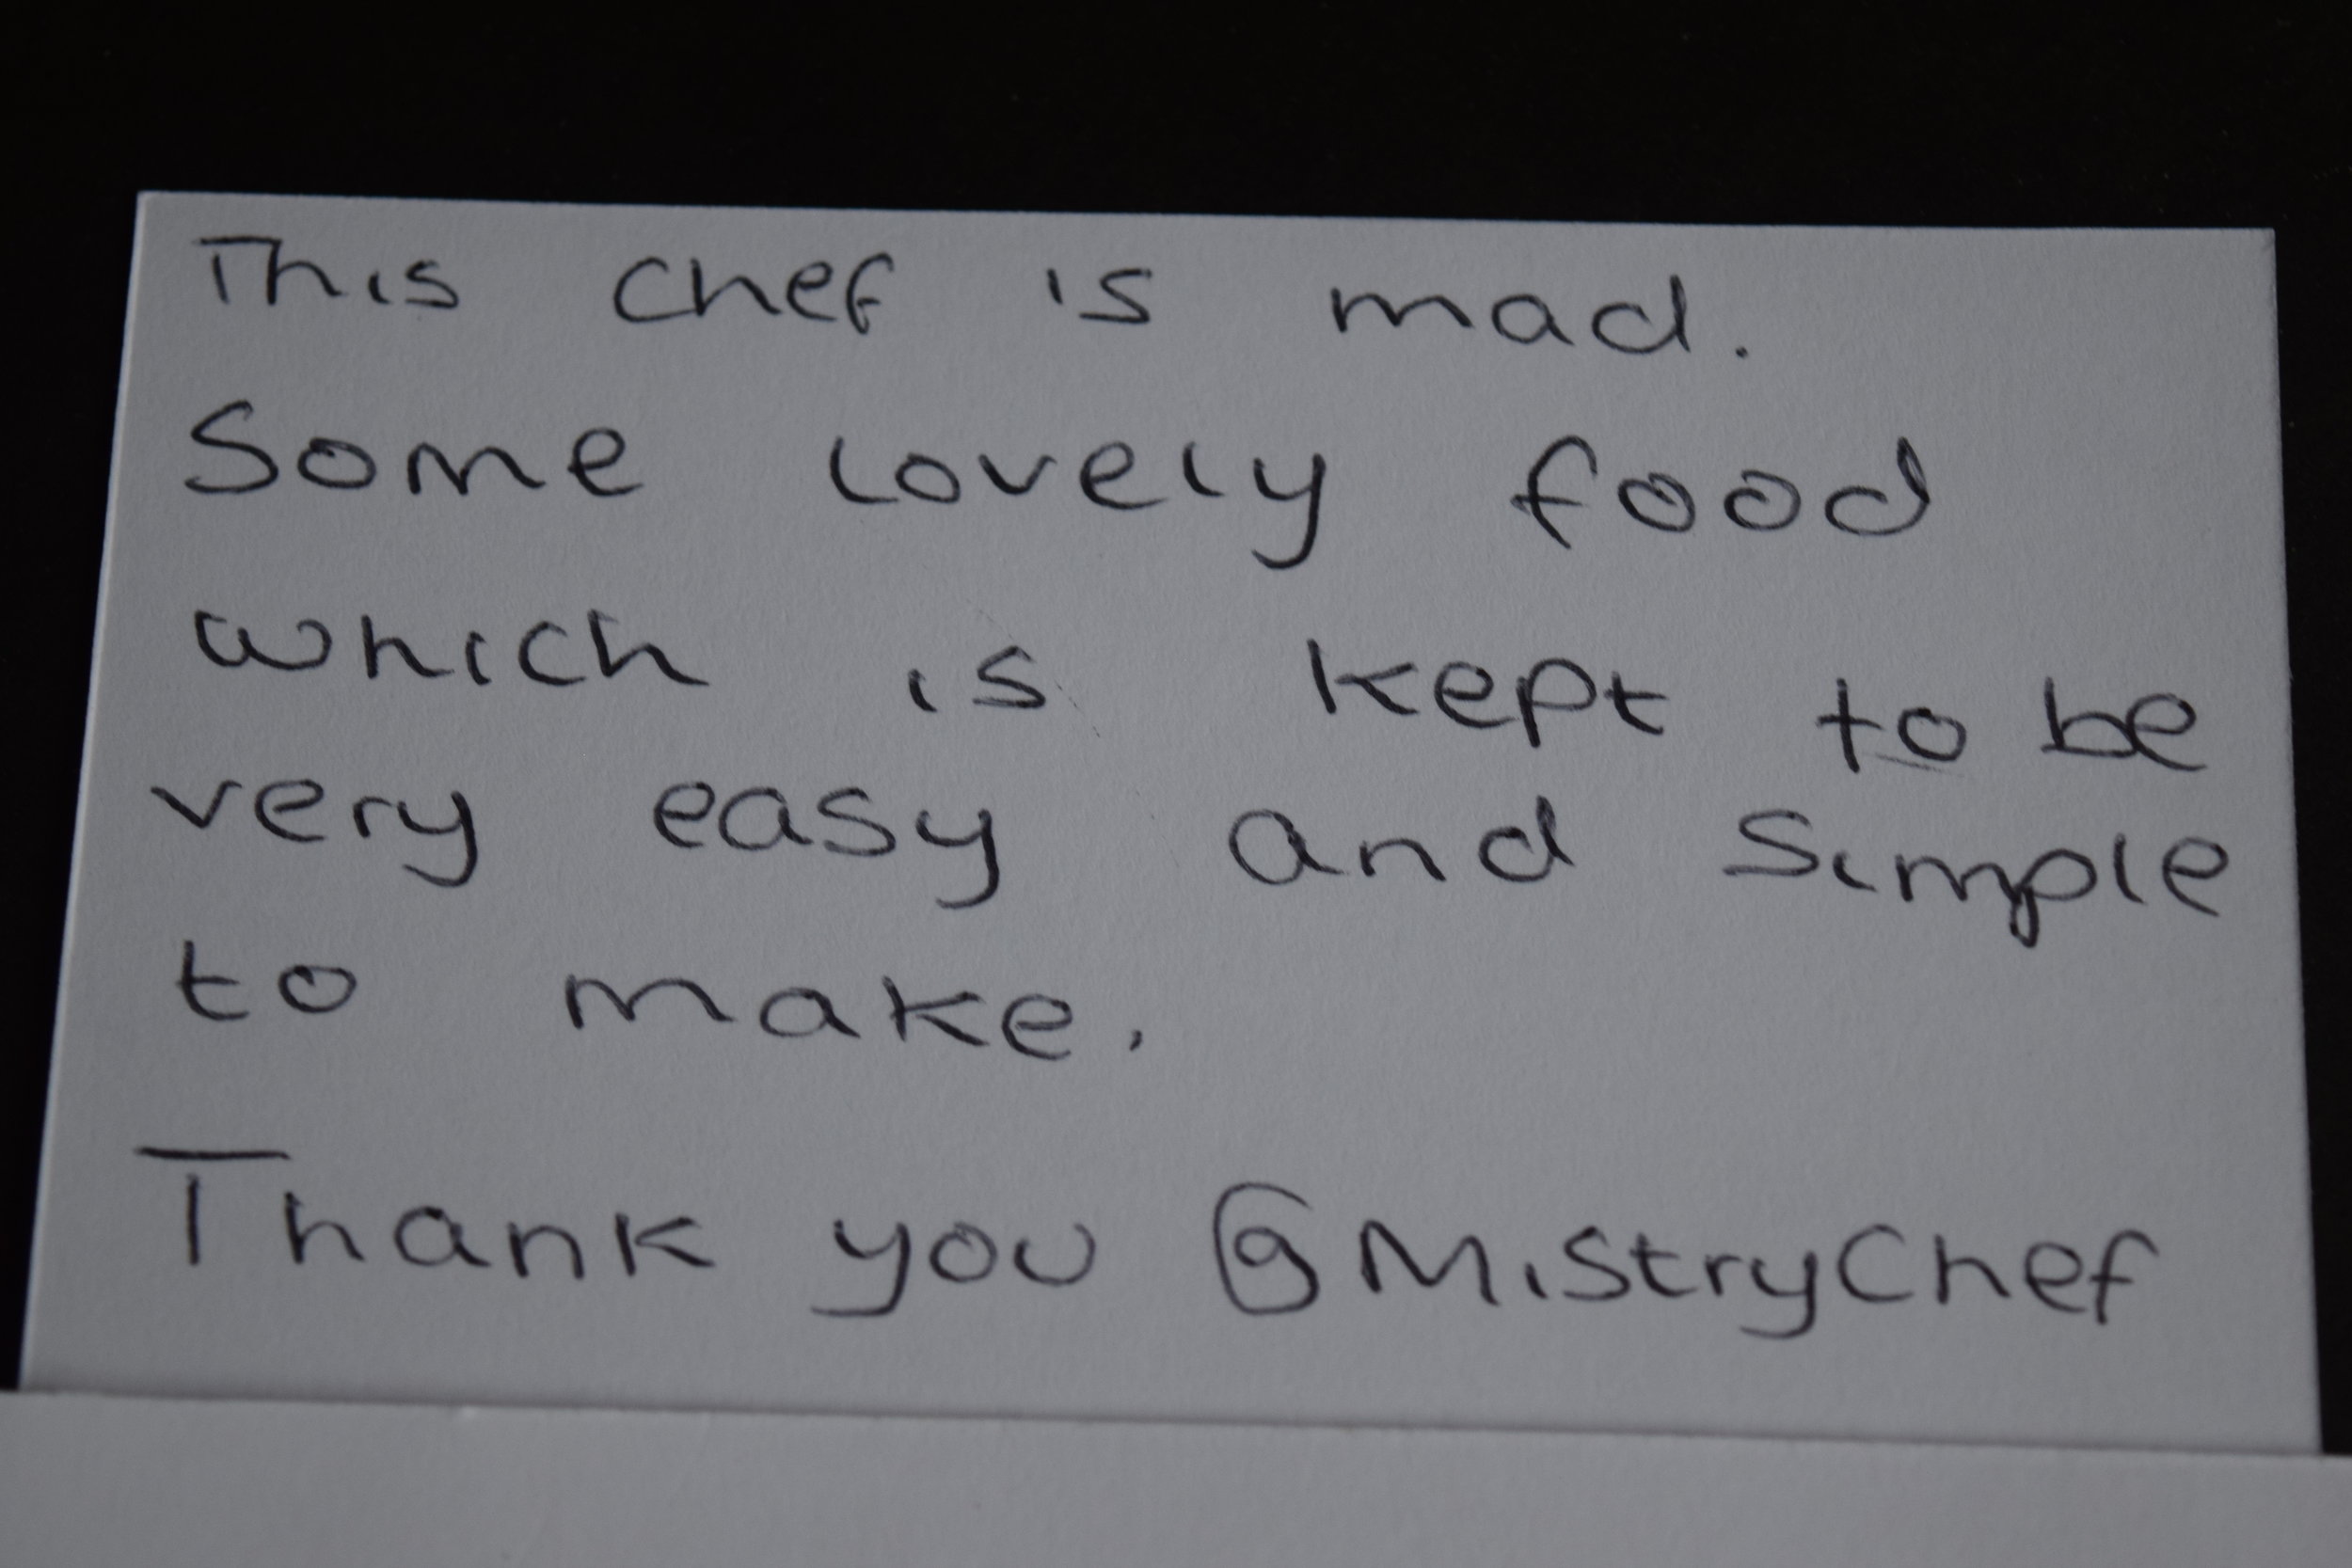 This chef is mad.
Some lovely food
which is kept to be
very easy and simple
to make.
Thank you @MistryChef